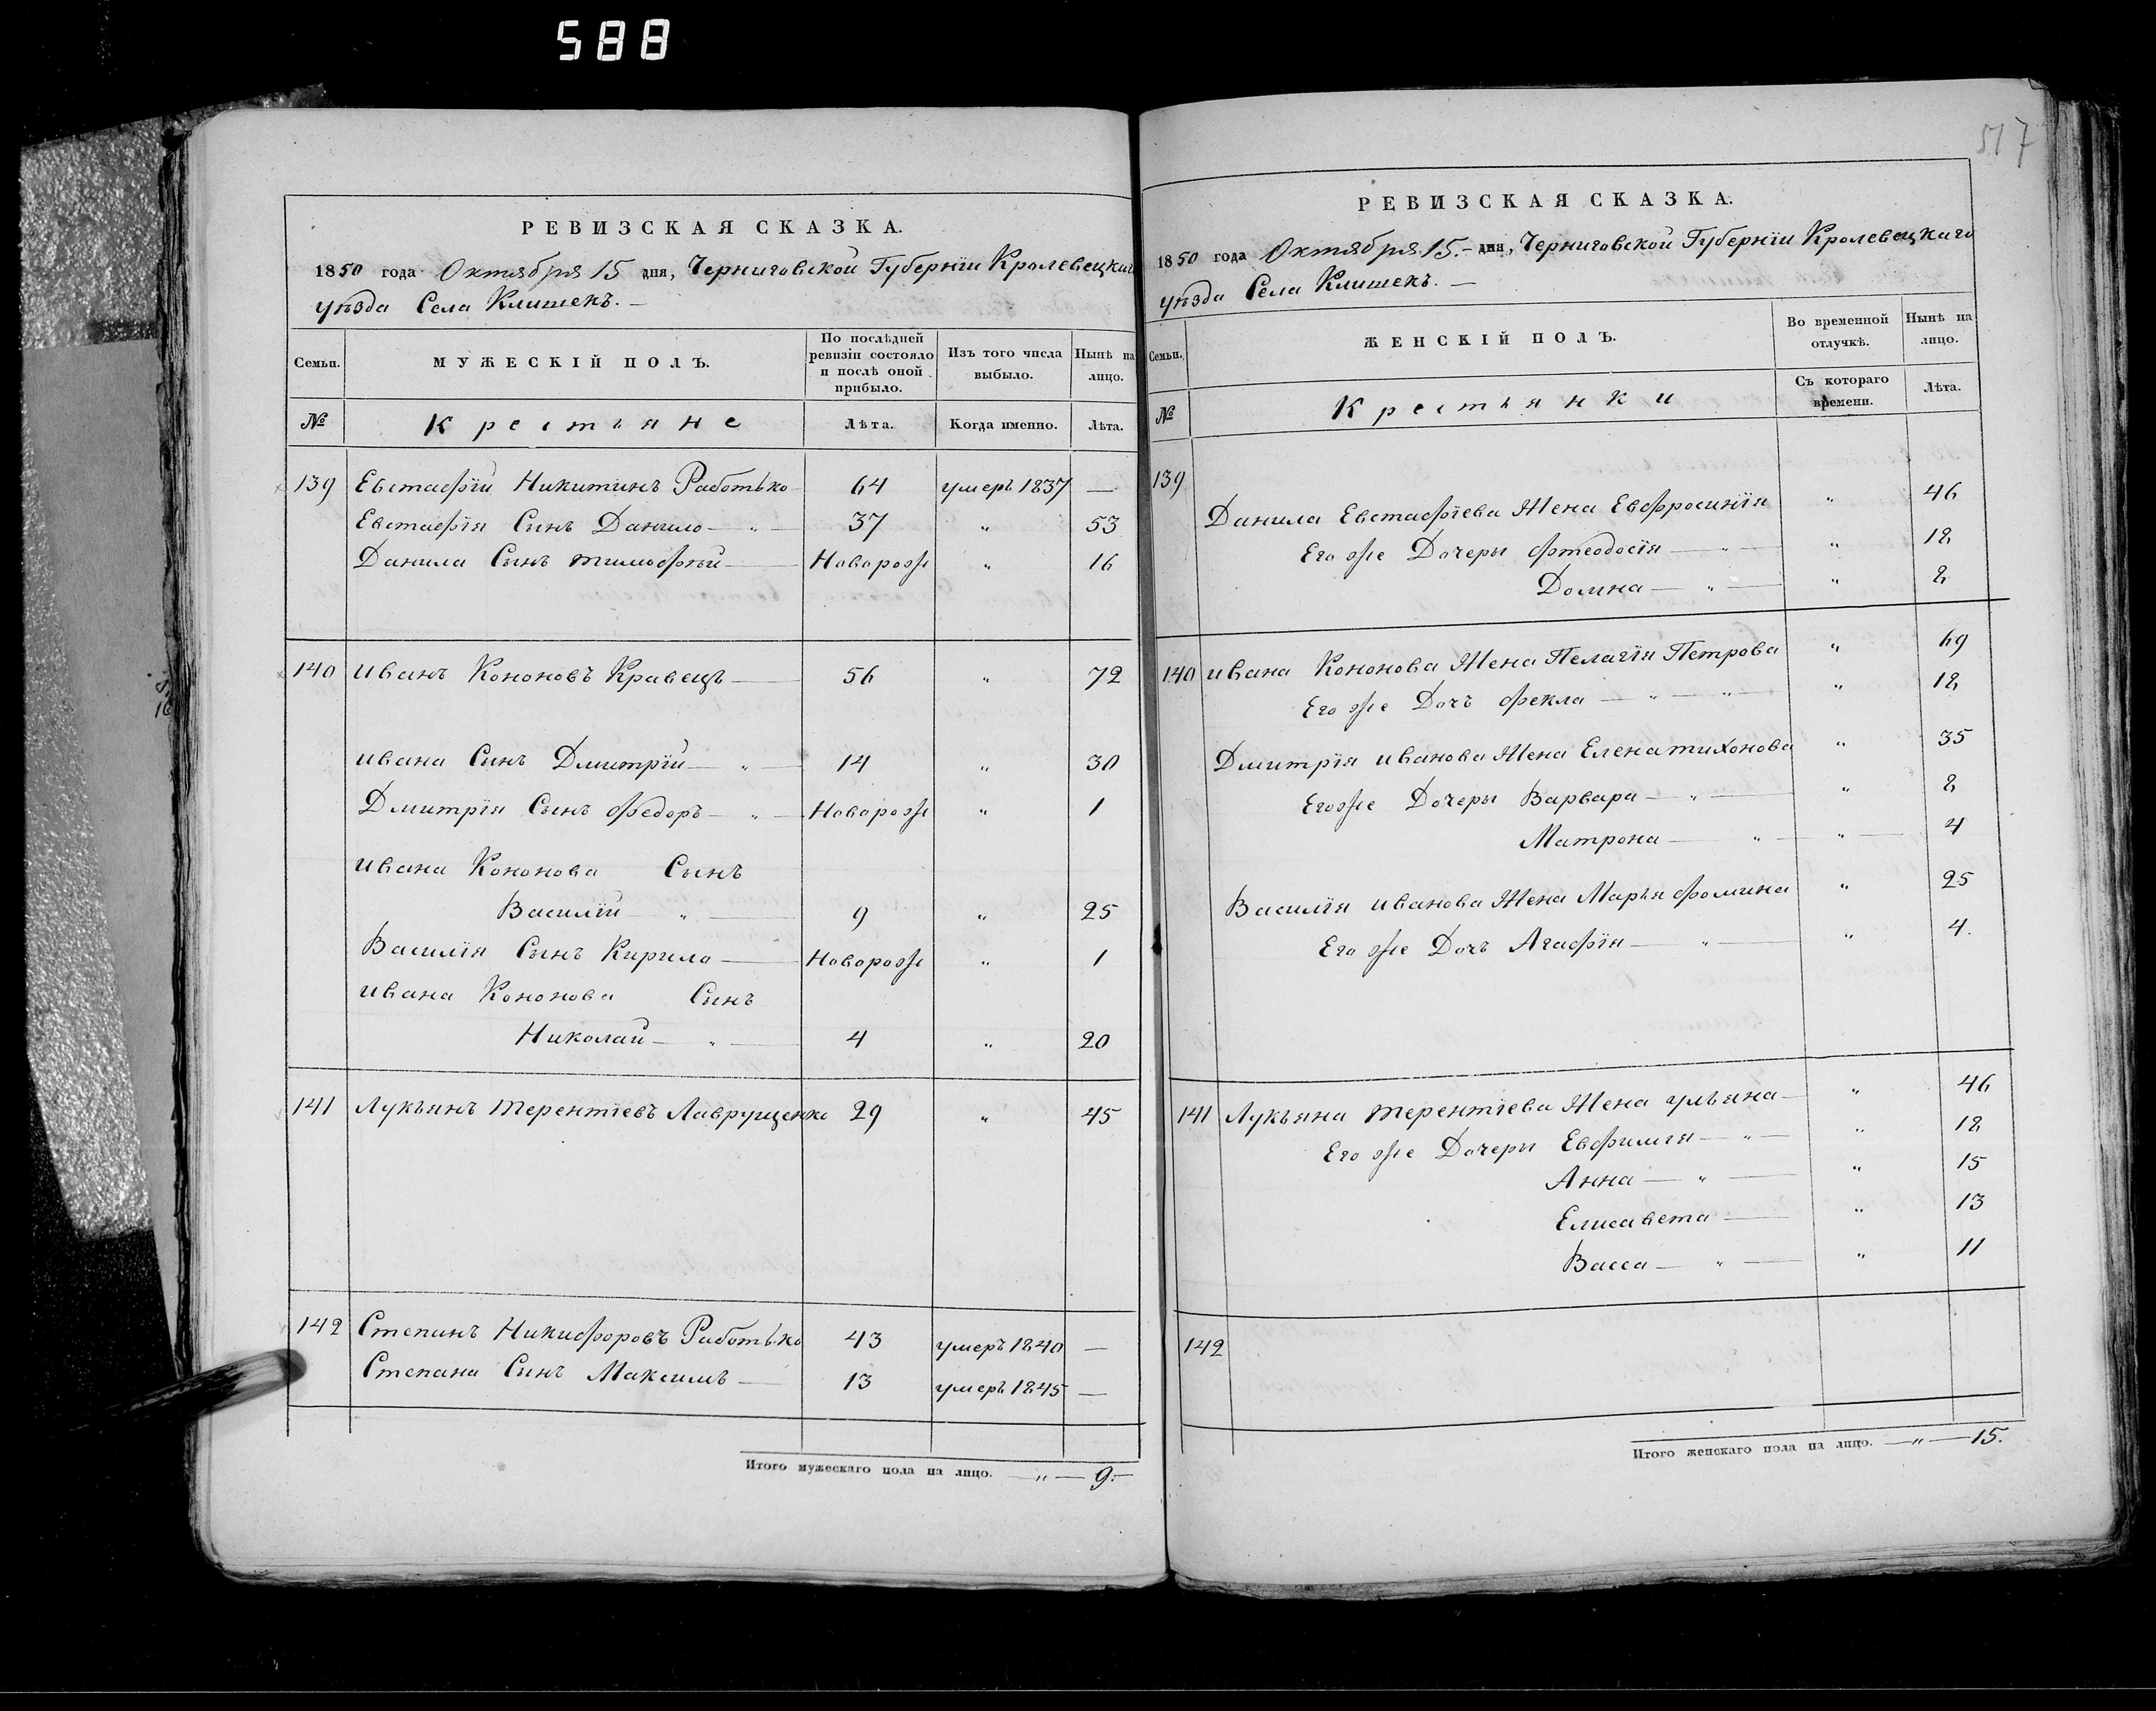 588
517
РЕВИЗСКАЯ СКАЗКА.
1850 года Октября 15 дня, Черниговской Губернїи Кролевецкаго
уѣзда Села Клишекъ. —
Семьи.
МУЖЕСКІЙ ПОЛЪ.
По послѣдней ревизіи состояло и послѣ оной прибыло.
Изъ того числа выбыло.
Нынѣ на лицо.
№
Крестьяне
Лѣта.
Когда именно.
Лѣта.
139 Евстафїй Никитинъ Работько 64 умеръ 1837 —
Евстафїя Сынъ Данило — „ — 37 „ 53
Данила Сынъ Тимофѣй — Новорож „ 16
140 Иванъ Кононовъ Кравецъ — 56 „ 72
Ивана Сынъ Дмитрїй — „ — 14 „ 30
Дмитрїя Сынъ Федоръ — „ — Новорож „ 1
Ивана Кононова Сынъ
Василїй — „ — 9 „ 25
Василїя Сынъ Кирило — Новорож „ 1
Ивана Кононова Сынъ
Николай — „ — 4 „ 20
141 Лукъянъ Терентїевъ Лаврущенко 29 „ 45
142 Степанъ Никифоровъ Работько 43 умеръ 1840 —
Степана Сынъ Максимъ — 13 умеръ 1845 —
Итого мужескаго пола на лицо. — „ — 9. —
РЕВИЗСКАЯ СКАЗКА.
1850 года Октября 15. — дня, Черниговской Губернїи Кролевецкаго
уѣзда Села Клишекъ. —
Семьи.
ЖЕНСКІЙ ПОЛЪ.
Во временной отлучкѣ.
Нынѣ на лицо.
№
Крестьянки
Съ котораго времени.
Лѣта.
139
Данила Евстафїева Жена Евфросинїя „ 46
Его же Дочеры Фтеодосїя — „ — „ 12
Домна — „ — „ 2
140 Ивана Кононова Жена Пелагїя Петрова „ 69
Его же Дочъ Фекла — „ — „ — „ 12
Дмитрїя Иванова Жена Елена Тихонова „ 35
Его же Дочеры Варвара — „ — „ 2
Матрона — „ — „ — 4
Василїя Иванова Жена Марья Фомина „ 25
Его же Дочъ Агафїя — „ — „ 4.
141 Лукъяна Терентїева Жена Ульяна — „ 46
Его же Дочеры Евфимия — „ — „ 12
Анна — „ — „ 15
Елисавета — „ 13
Васса — „ — „ 11
142
Итого женскаго пола на лицо. — „ — 15.